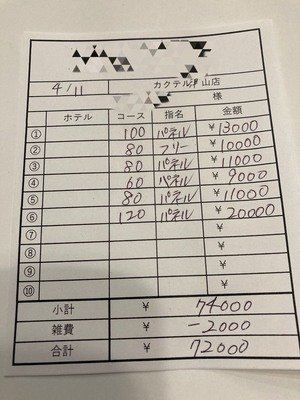 4/11 カクテル 山店
様
ホテル コース 指名 金額
① 100 パネル ¥13000
② 80 フリー ¥10000
③ 80 パネル ¥11000
④ 60 パネル ¥9000
⑤ 80 パネル ¥11000
⑥ 120 パネル ¥20000
⑦ ¥
⑧ ¥
⑨ ¥
⑩ ¥
小計 ¥ 74000
雑費 ¥ -2000
合計 ¥ 72000